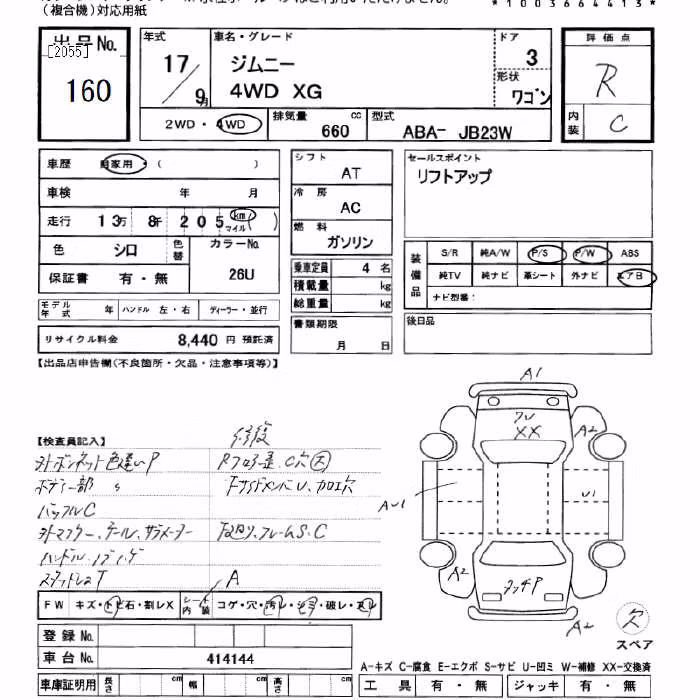 (複合機)対応用紙
*1003664413*
出品No.
[2055]
160
年式
17/9月
車名・グレード
ジムニー
4WD XG
ドア
3
形状
ワゴン
評価点
R
内装
C
2WD・4WD
排気量
660 cc
型式
ABA- JB23W
車歴 自家用・( )
車検 年 月
走行 13万 8千 205 km マイル( )
色 シロ 色替
カラーNo.
26U
保証書 有・無
モデル年式 年 ハンドル 左・右 ディーラー・並行
リサイクル料金 8,440 円 預託済
シフト
AT
冷房
AC
燃料
ガソリン
乗車定員 4 名
積載量 kg
総重量 kg
書類期限
月 日
セールスポイント
リフトアップ
装備品
S/R 純A/W P/S P/W ABS
純TV 純ナビ 革シート 外ナビ エアB
ナビ型番:
後日品
【出品店申告欄(不良箇所・欠品・注意事項等)】
【検査員記入】
修復
外ボンネット色違いP
ボディー部 〃
バッフルC
外マフラー、テール、サブメーター
ハンドル、ノブ
スタッドレスT
下廻り、フレームS.C
A
FW キズ・トビ石・割レX
シート内装 コゲ・穴・汚レ・シミ・破レ・スレ
登録No.
車台No. 414144
車庫証明用 長さ cm 幅 cm 高さ cm
A1
XX
A2
AU1
U1
A2
タッチP
A2
欠
スペア
A-キズ C-腐食 E-エクボ S-サビ U-凹ミ W-補修 XX-交換済
工具 有・無 ジャッキ 有・無